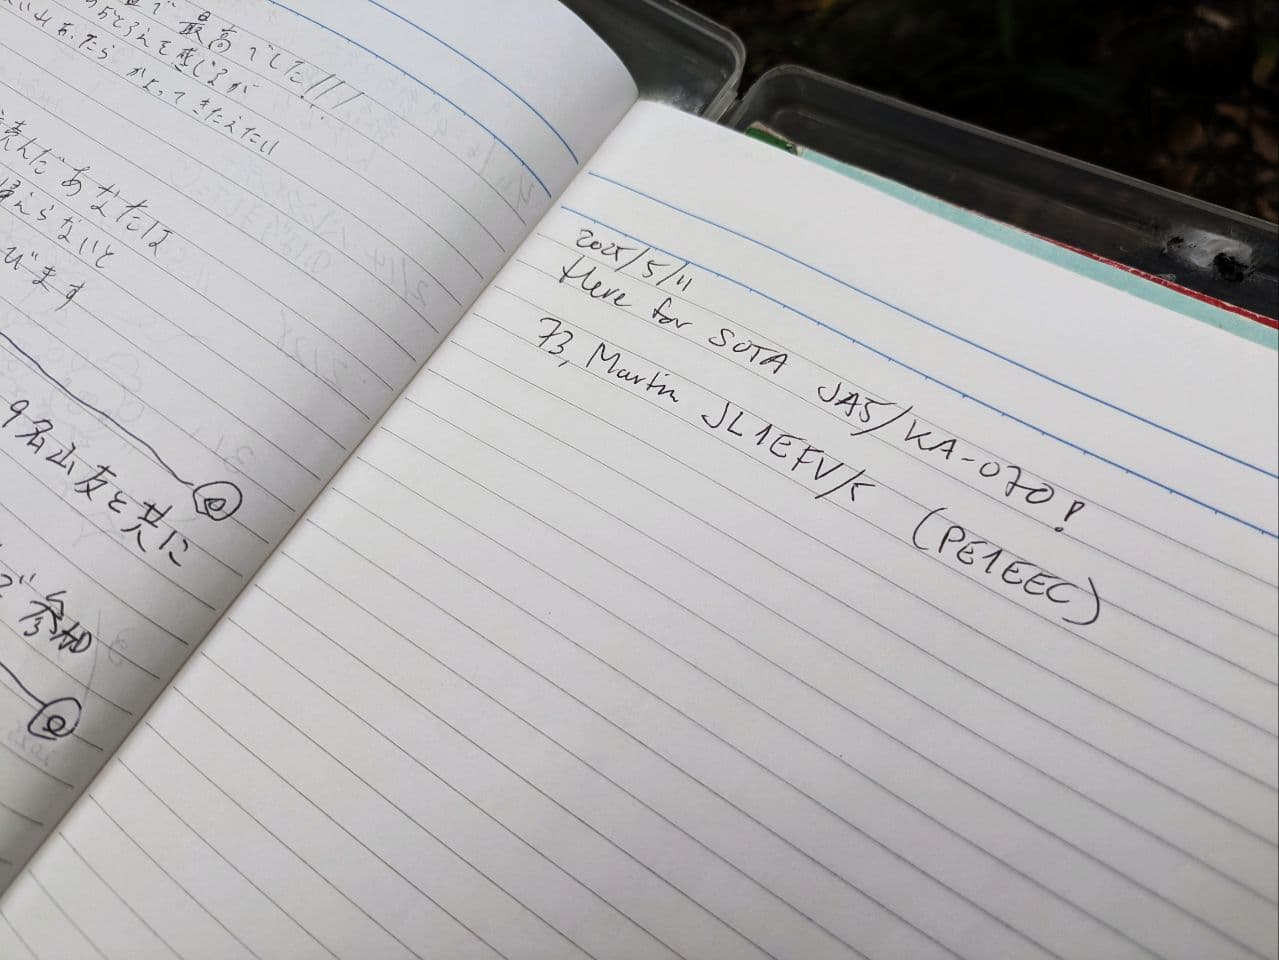 最高でした!!!
を感じるが
あったら かよってきたえたい
読んだあなたは
帰らないと
びます
9名山友と共に
で参加
2025/5/11
Here for SOTA JA5/KA-070!
73, Martin JL1EFV/5 (PE1EEC)